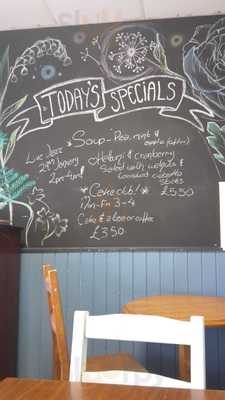 TODAY'S SPECIALS
*Soup - Pea, mint &
apple
Live Jazz
29th January
2pm-4pm
Halloumi & cranberry
Salad with walnuts &
*Cake club!*
£5.50
Mon-Fri 3-4
Cake & a tea or coffee
£3.50